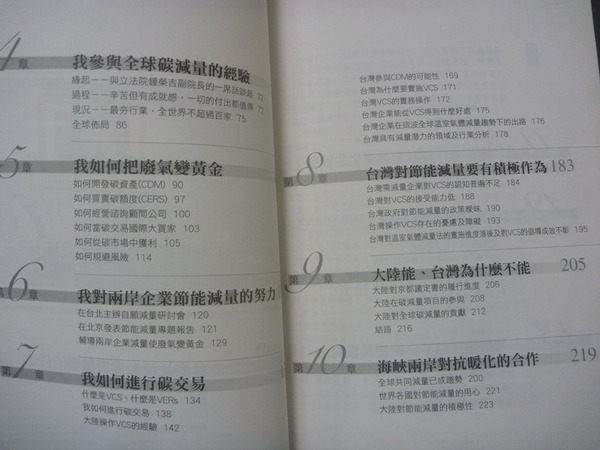 4章 我參與全球碳減量的經驗
緣起－－與立法院鍾榮吉副院長的一席話談起 72
過程－－辛苦但有成就感，一切的付出都值得 72
現況－－最夯行業，全世界不超過百家 75
全球佈局 86
5章 我如何把廢氣變黃金
如何開發碳資產(CDM) 90
如何買賣碳額度(CERS) 97
如何經營諮詢顧問公司 100
如何當碳交易國際大買家 103
如何從碳市場中獲利 105
如何規避風險 114
6章 我對兩岸企業節能減量的努力
在台北主辦自願減量研討會 120
在北京發表節能減量專題報告 121
輔導兩岸企業減量使廢氣變黃金 129
第7章 我如何進行碳交易
什麼是VCS、什麼是VERs 134
我如何進行碳交易 138
大陸操作VCS的經驗 142
台灣參與CDM的可能性 169
台灣為什麼要實施VCS 171
台灣VCS的實務操作 172
台灣企業能從VCS得到什麼好處 175
台灣企業在這波全球溫室氣體減量趨勢下的出路 176
台灣具有減量潛力的領域及行業分析 178
第8章 台灣對節能減量要有積極作為 183
台灣需減量企業對VCS的認知普遍不足 184
台灣對VCS的接受能力低 188
台灣政府對節能減量的政策曖昧 190
台灣操作VCS存在的憂慮及障礙 193
台灣對溫室氣體減量法的實施進度落後及對VCS的倡導成效不彰 195
第9章 大陸能、台灣為什麼不能 205
大陸對京都議定書的履行進度 206
大陸在碳減量項目的參與 208
大陸對全球碳減量的貢獻 212
結語 216
第10章 海峽兩岸對抗暖化的合作 219
全球共同減量已成趨勢 200
世界各國對節能減量的用心 221
大陸對節能減量的積極性 223